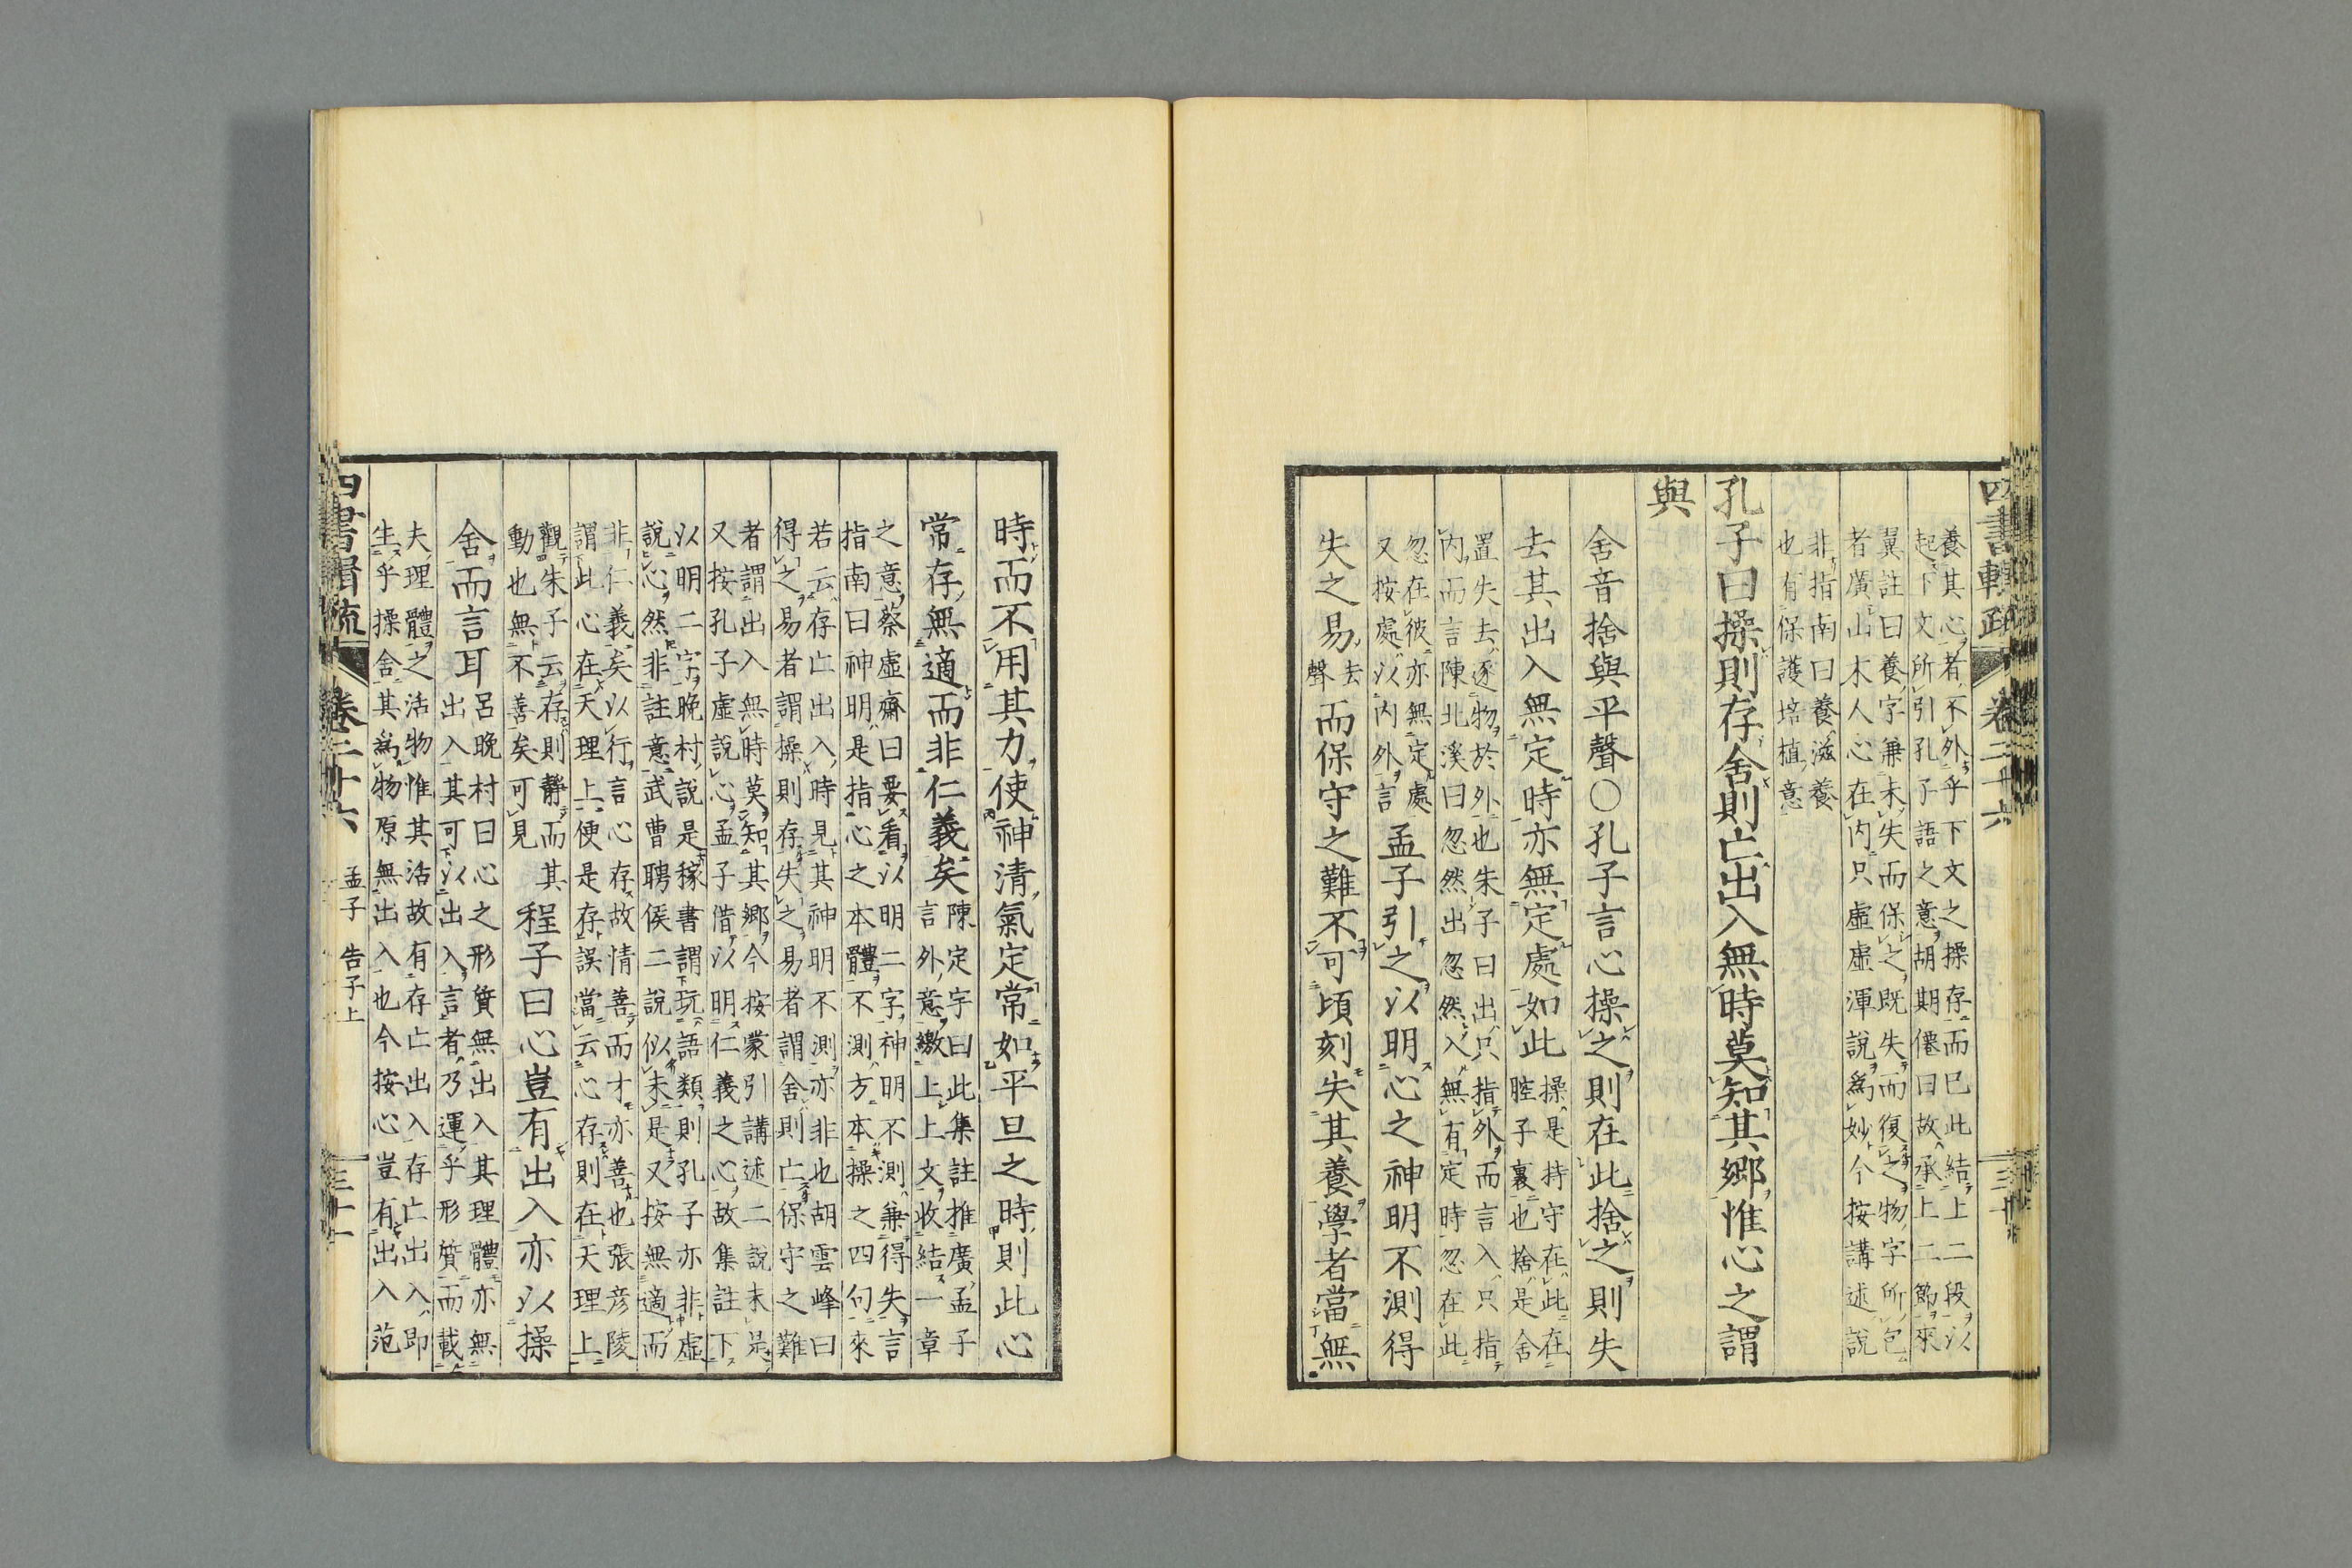 四書輯疏 卷二十六 三十
養其心者不外乎下文之操存而已此結上二段以
起下文所引孔子語之意胡期僊曰故承上二節來
翼註曰養字兼未失而保之既失而復之物字所包
者廣山木人心在内只虛虛渾說爲妙今按講述說
非指南曰養滋養
也有保護培植意
孔子曰操則存舍則亡出入無時莫知其鄉惟心之謂
與
舍音捨與平聲○孔子言心操之則在此捨之則失
去其出入無定時亦無定處如此
操是持守在此在
腔子裏也捨是舍
置失去逐物於外也朱子曰出只指外而言入只指
内而言陳北溪曰忽然出忽然入無有定時忽在此
忽在彼亦無定處
又按處以内外言
孟子引之以明心之神明不測得
失之易
去
聲
而保守之難不可頃刻失其養學者當無
時而不用其力使神清氣定常如平旦之時則此心
常存無適而非仁義矣
陳定宇曰此集註推廣孟子
言外意繳上上文收結一章
之意蔡虛齋曰要看以明二字神明不測兼得失言
指南曰神明是指心之本體不測方本操之四句來
若云存亡出入時見其神明不測亦非也胡雲峰曰
得之易者謂操則存失之易者謂舍則亡保守之難
者謂出入無時莫知其鄉今按蒙引講述二說未是
又按孔子虛說心孟子借以明仁義之心故集註下
以明二字晚村說是稼書謂玩語類則孔子亦非虛
說心然非註意武曹聘侯二說似未是又按無適而
非仁義矣以行言心存故情善而才亦善也張彥陵
謂此心在天理上便是存誤當云心存則在天理上
觀朱子云存則靜而其
動也無不善矣可見
程子曰心豈有出入亦以操
舍而言耳
呂晚村曰心之形質無出入其理體亦無
出入其可以出入言者乃運乎形質而載
夫理體之活物惟其活故有存亡出入存亡出入即
生乎操舍其爲物原無出入也今按心豈有出入范
四書輯疏 卷二十六 孟子 告子上 三十一